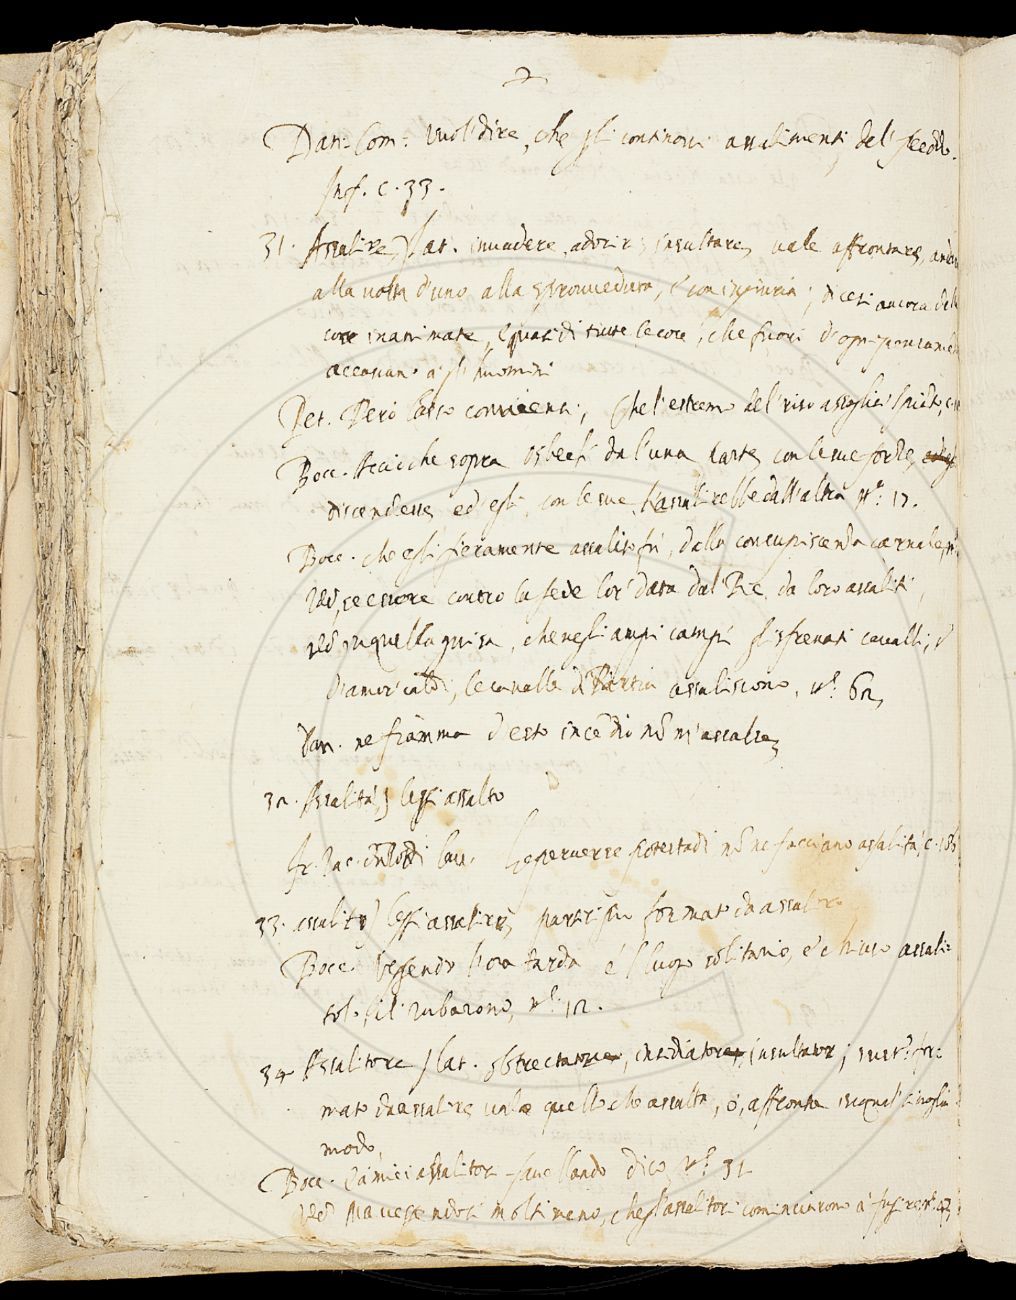 2
Dan: Com: vuol dire, che gli continovi assalimenti del freddo.
Inf. c. 33.
31. Assalire, lat. invadere, adorir, insultare, vale affrontare,
alla volta d'uno alla sprovveduta, e con ingiuria; dicesi ancora del
cose inanimate, e quasi di tutte le cose, che fuori d'ogni
accascano a gli huomini
Pet. Però lasso convienci, che l'estremo del riso assaglia
Bocc. Acciò che sopra Usbech da l'una parte con le sue forze
discendesse ed egli con le sue l'assalirebbe dall'altra n.º 17.
Bocc. che egli fieramente assalito fu, dalla concupiscenza carnale,
essere contro la fede lor data dal Re, da loro assaliti,
in quella guisa, che negli ampi campi gli sfrenati cavalli,
d'amor caldi, le cavalle di Partia assaliscono, n.º 62,
Dan. ne fiamma d'esto incendio nõ m'assale,
32. Assalita, leggi assalto
Fr. Jac. le perverse potestadi nõ ne facciano assalita,
33. assalito leggi assalire, partitipio formato da assalire
Bocc. Veggendo l'hora tarda e 'l luogo solitario, e chiuso assali=
tol, il rubarono, n.º 12.
34 Assalitore lat. obstrectatore, insidiatore, insultator; for=
mato da assalire vale quello che assalta, ò, affronta in qual si voglia
modo,
Bocc. l'amici assalitor favellando dico n.º 31
Ma veggendosi molti meno, che gl'assalitori cominciarono à fugire